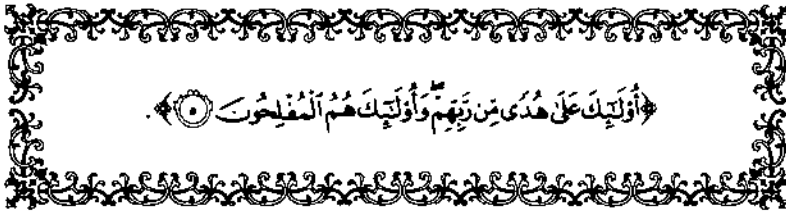 ﴿أُوْلَٰٓئِكَ عَلَىٰ هُدٗى مِّن رَّبِّهِمۡۖ وَأُوْلَٰٓئِكَ هُمُ ٱلۡمُفۡلِحُونَ ٥﴾.